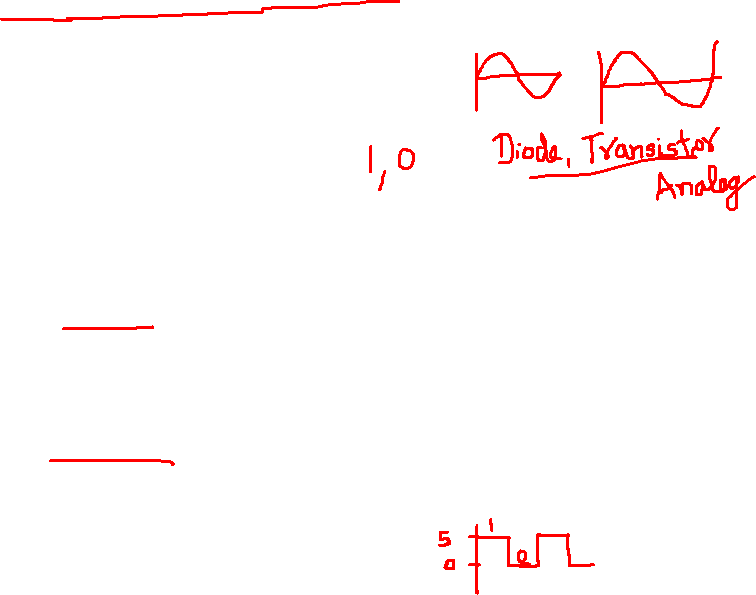 1, 0
Diode, Transistor
Analog
1
5
0
0